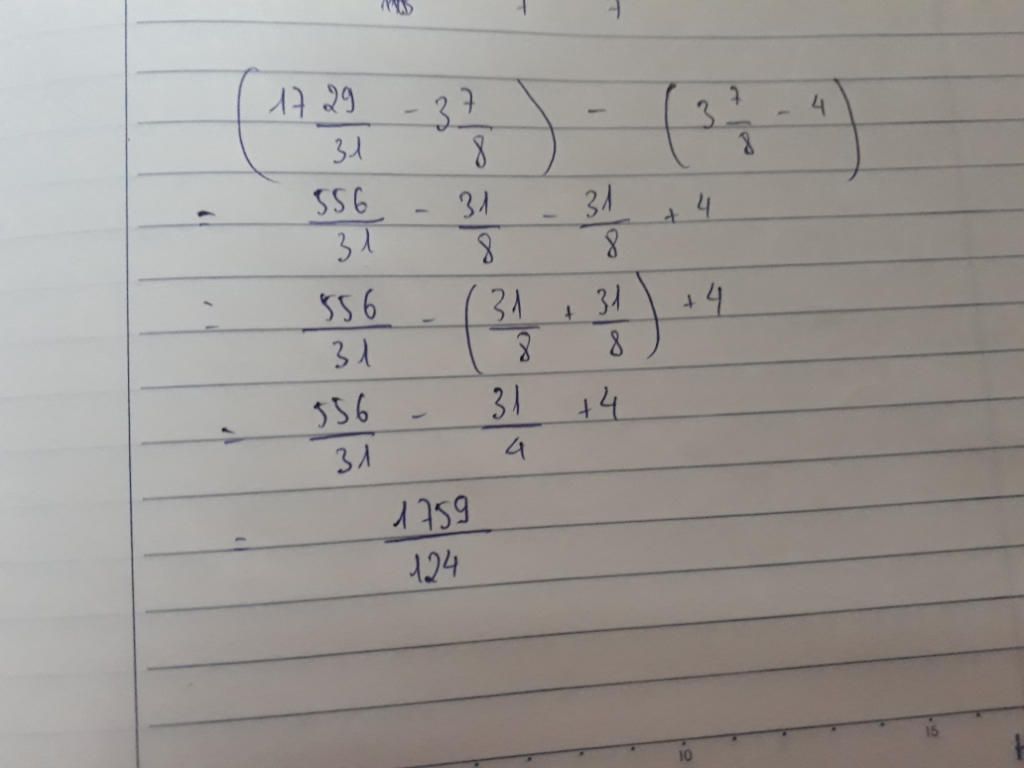 (17 29/31 - 3 7/8) - (3 7/8 - 4)
= 556/31 - 31/8 - 31/8 + 4
= 556/31 - (31/8 + 31/8) + 4
= 556/31 - 31/4 + 4
= 1759/124
10 15